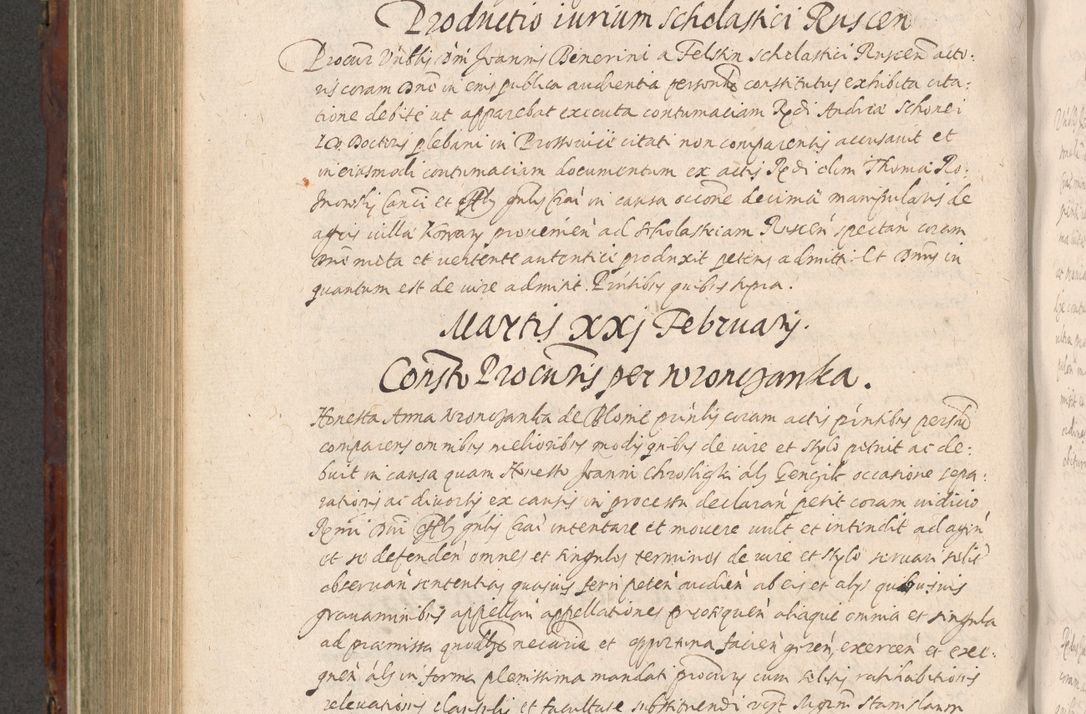 Productio iurium Scholastici Ruscen
Procur Vnblis Dni Joannis Benerini a Felstin Scholastici Ruscen acto-
ris coram Dno in eius publica audientia personl constitutus exhibita cita-
tione debite ut apparebat executa contumaciam Rdi Andreæ Schonei
I. D. Doctoris plebani in Prossovicie citati non comparentis accusavit et
in eiusmodi contumaciam documentum ex actis Rdi olim Thomæ Ro-
gnowskj Canci et Offlis gnlis Craci in causa occone decimæ manipularis de
agris villæ provenien ad Scholasteriam Ruscen spectan coram
Dno mota et vertente autentice produxit petens admitti. Et Dnus in
quantum est de iure admisit. Pntibus quibus supra.
Martis XXj Februarij.
Consto Procuris per Wronczanka.
Honesta Anna Wronczanka de Blonie prinlis coram actis pntibus personl
comparens omnibus melioribus modis quibus de iure et stylo potuit ac de-
buit in causa quam Honesto Joanni Chrosligki als Gengik occasione sepa-
rationis ac divortij ex causis in processu declaran petit coram iudicio
Rmi Dni Offlis gnlis Craci intentare et movere vult et intendit ad agen
et se defenden omnes et singulos terminos de iure et stylo servari solis
observan sententias quasvis ferri peten audien ab eis et alijs quibusvis
gravaminibus appellan appellationes prosequen aliaque omnia et singula
ad præmissa quodlibet necaria et opportuna facien geren exercen et exe-
quen als in forma plenissima mandati procuris cum solitis ratihabitionis
relevationis clausulis et facultate substituendi Stanislaum